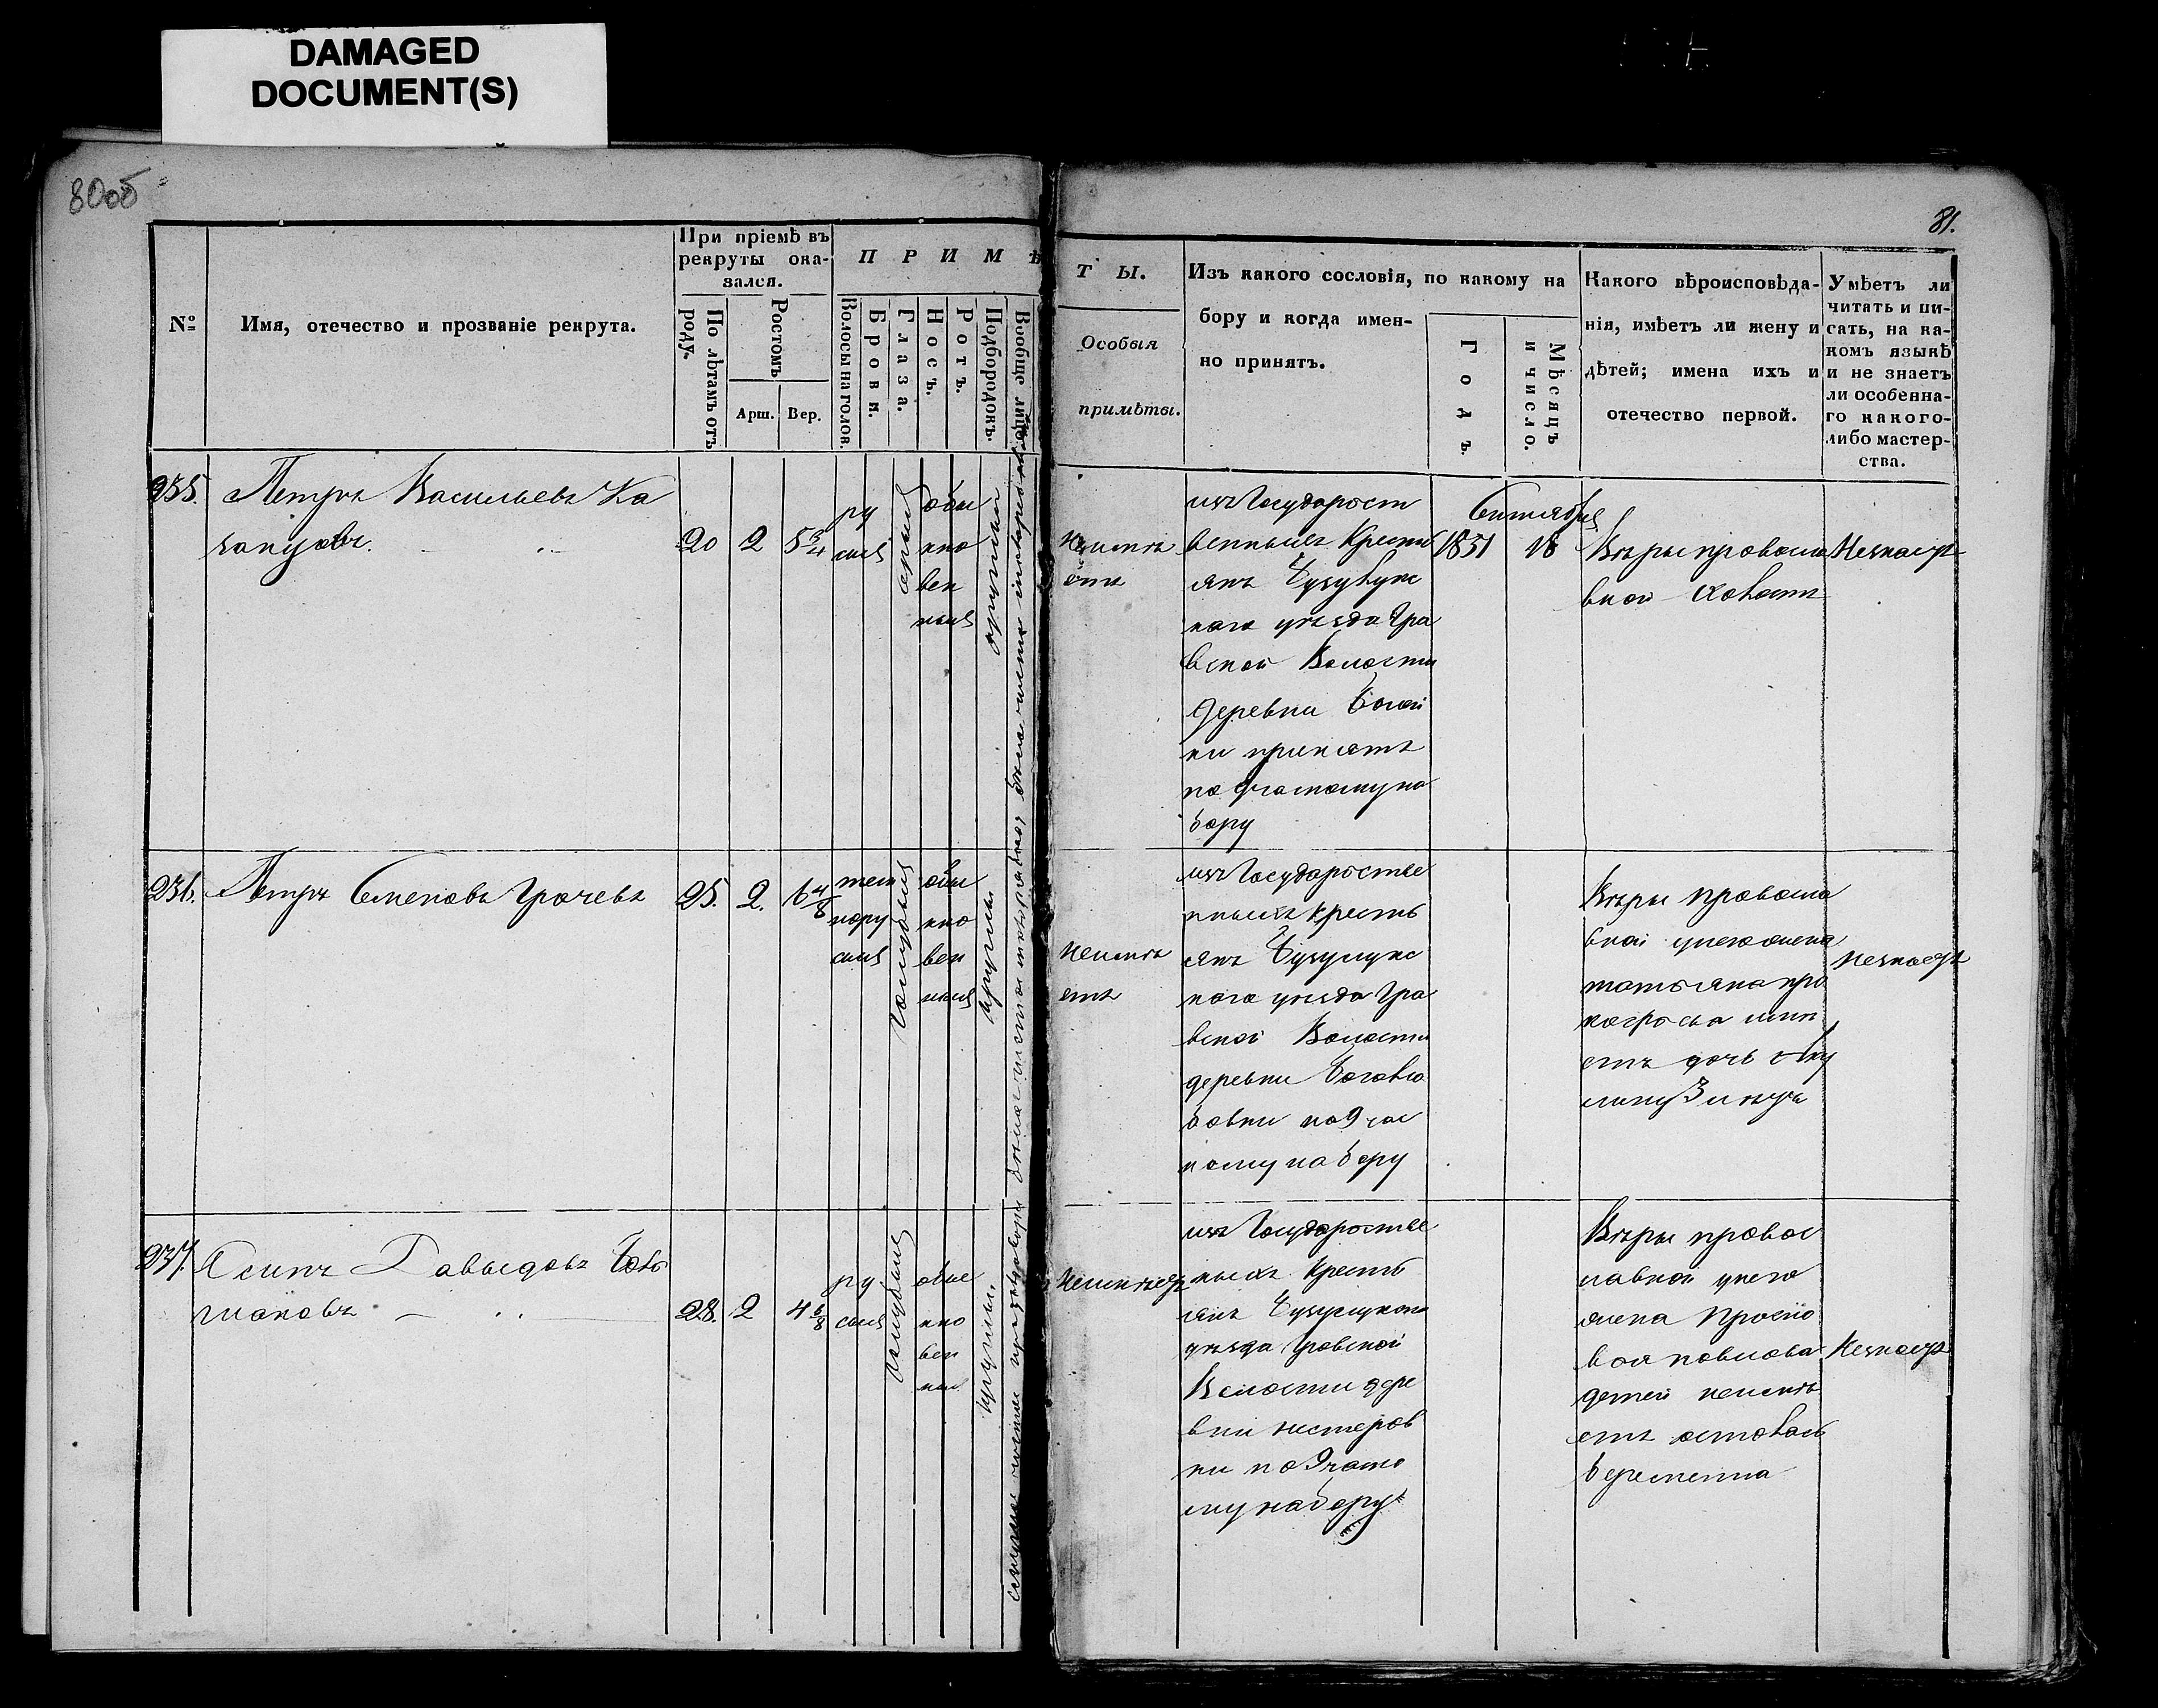 DAMAGED
DOCUMENT(S)
80об
81.
№
Имя, отечество и прозваніе рекрута.
При пріемѣ въ
рекруты ока-
зался.
По лѣтамъ отъ
роду.
Ростомъ
Арш.
Вер.
П Р И М Ѣ
Волосы на голов.
Брови.
Глаза.
Носъ.
Ротъ.
Подбородокъ.
Вообще лице
Т Ы.
Особыя
примѣты.
Изъ какого сословія, по какому на
бору и когда имен-
но принятъ.
Годъ.
Мѣсяцъ
и число.
Какого вѣроисповѣда-
нія, имѣетъ ли жену и
дѣтей; имена ихъ и
отечество первой.
Умѣетъ ли
читать и пи-
сать, на ка-
комъ языкѣ
и не знаетъ
ли особенна-
го какого-
либо мастер-
ства.
935.
Петръ Васильевъ Ка
20
2
5 3/4
ру
сыя
серыя
обы
кно
вен
ныя
неимѣ
етъ
изъ Государст
венныхъ Крестъ
янъ Бузулукс
кого уѣзда Гра
вской Волости
деревни
ки принятъ
по 9 частному на
бору
1851
Сентября
18
Вѣры православ
вной холостъ
Незнаетъ
936.
Петръ Семеновъ Грачевъ
25.
2.
6 4/8
тем
нору
сыя
голубыя
обы
кно
вен
ныя
круглый
неимѣ
етъ
изъ Государстве
нныхъ кресть
янъ Бузулукс
кого уѣзда Гра
вской Волости
деревни Боголю
бовки по 9 час
ному набору
Вѣры правосла
вной унего жена
татьяна про
имѣ
етъ дочь Аку
лину 3 лѣтъ
незнаетъ
937.
Осипъ Давыдовъ
28.
2
4 6/8
ру
сыя
голубыя
обые
кно
вен
ныя
круглый
Неимѣетъ
изъ Государстве
ныхъ Кресть
янъ Бузулукого
уѣзда Гравской
Волости дере
вни нестеров
ки по 9 частно
му набору
Вѣры правос
лавной унего
жена Проско
вья павлова
детей неимѣ
етъ осталась
беременна
Незнаетъ